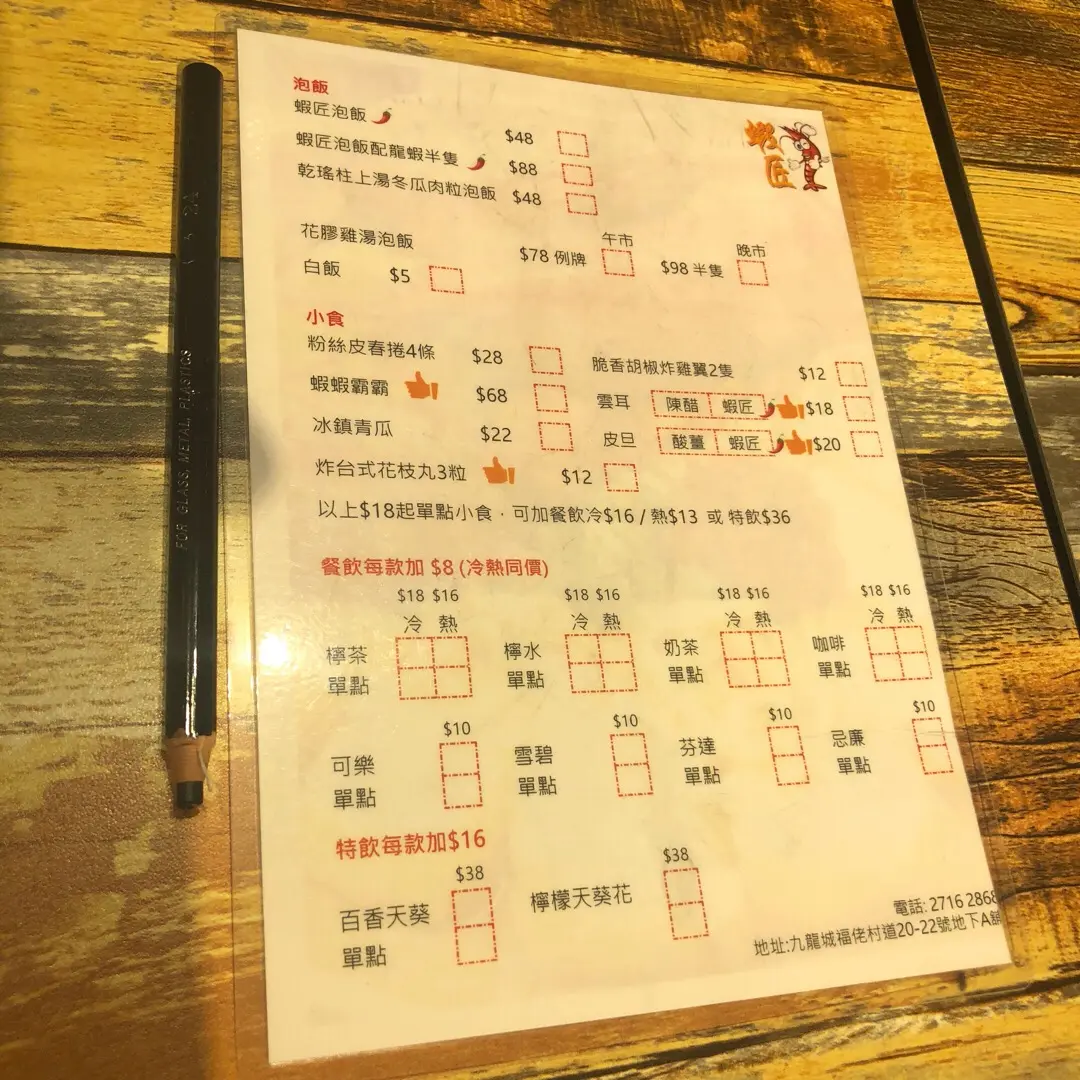 蝦匠
泡飯
蝦匠泡飯 $48
蝦匠泡飯配龍蝦半隻 $88
乾瑤柱上湯冬瓜肉粒泡飯 $48
午市 晚市
花膠雞湯泡飯 $78 例牌 $98 半隻
白飯 $5
小食
粉絲皮春捲4條 $28 脆香胡椒炸雞翼2隻 $12
蝦蝦霸霸 $68 雲耳 陳醋 蝦匠 $18
冰鎮青瓜 $22 皮旦 酸薑 蝦匠 $20
炸台式花枝丸3粒 $12
以上$18起單點小食﹐可加餐飲冷$16 / 熱$13 或 特飲$36
餐飲每款加 $8 (冷熱同價)
$18 $16 $18 $16 $18 $16 $18 $16
冷 熱 冷 熱 冷 熱 冷 熱
檸茶 檸水 奶茶 咖啡
單點 單點 單點 單點
$10 $10 $10 $10
可樂 雪碧 芬達 忌廉
單點 單點 單點 單點
特飲每款加$16
$38 $38
百香天葵 檸檬天葵花
單點
電話: 2716 2868
地址:九龍城福佬村道20-22號地下A舖
FOR GLASS, METAL, PLASTICS